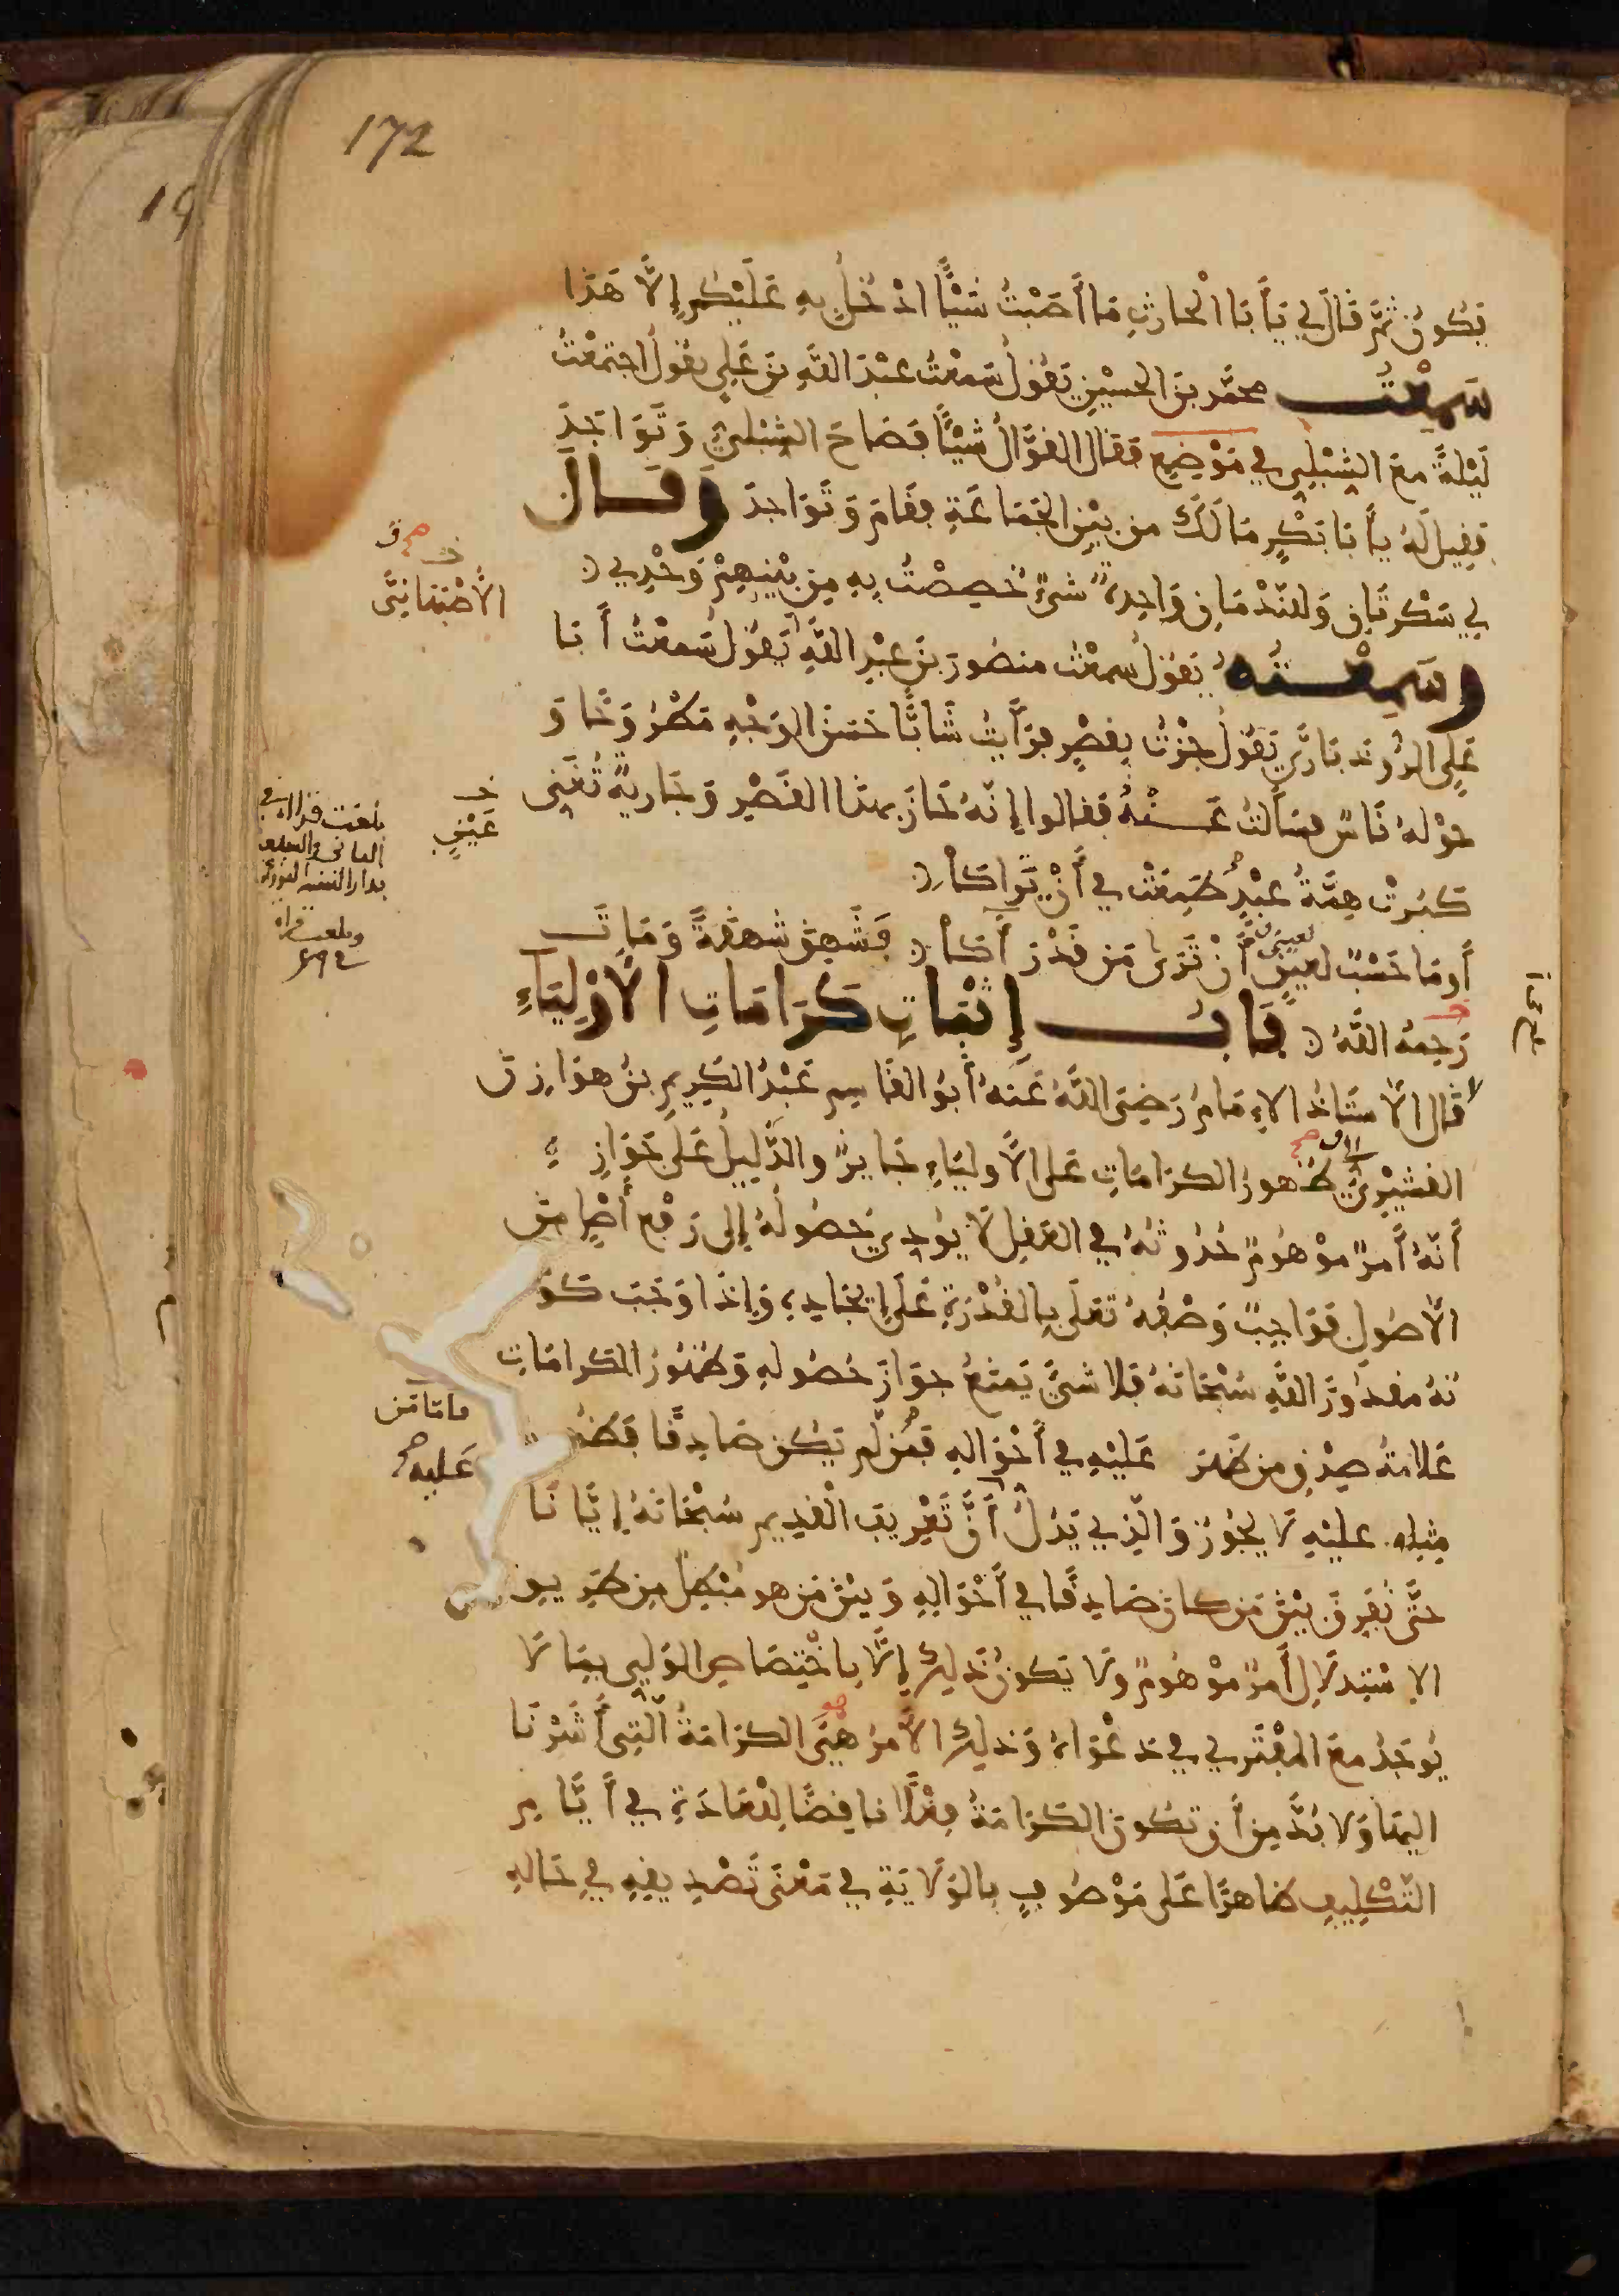 172
19
يكون ثمَّ قال لي يا أبا الحارث ما أصبت شيئًا ادخل به عليكم إلا هذا
سمعت محمّد بن الحسين يقول سمعت عبد الله بن علي يقول اجتمعت
ليلةً مع الشبلي في موضع فقال القوّال شيئًا فصاح الشبلي وتواجد
فقيل له يا أبا بكر ما لك من بين الجماعة فقام وتواجد وقال
لي سكرتان وللندمان واحدة شيء خصصت به من بينهم وحدي
وسمعته يقول سمعت منصور بن عبد الله يقول سمعت أبا
علي الروذباري يقول جزت بقصر فرأيت شابًّا حسن الوجه مطروحا و
حوله ناس فسألت عنه فقالوا إنّه جاز بهذا القصر وجارية تغني
كبرت همة عبد طمعت في أن تراكا
أو ما حسب لعين أن ترى من قد رأكا فشهق شهقةً ومات
رحمه الله باب إثبات كرامات الأولياء
قال الأستاذ الإمام رضي الله عنه أبو القاسم عبد الكريم بن هوازن
القشيري ظهور الكرامات على الأولياء جايز والدليل على جواز
أنّه أمر موهوم حدوثه في العقل لا يؤدي حصوله إلى رفع أصل من
الأصول فواجب وصفه تعلى بالقدرة على إيجاده وإذا وجب كو
نه مقدور الله سبحانه فلا شيء يمنع جواز حصوله وظهور الكرامات
علامة صدق من ظهر عليه في أحواله فمن لم يكن صادقا فظهور
مثله عليه لا يجوز والذي يدل أنّ تعريف القديم سبحانه إيّانا
حتّى نفرق بين من كان صادقا في أحواله وبين من هو مبطل من طريق
الاستدلال أمر موهوم ولا يكون ذلك إلّا باختصاص الولي بما لا
يوجد مع المفتري في دعواه وذلك الأمر هي الكرامة التي أشرنا
اليها ولا بدّ من أن تكون الكرامة فعلا ناقضا للعادة في أيّام
التكليف ظاهرا على موصوف بالولاية في معنى تصديقه في حاله
خ صح ق
الأصبهانيّ
خ
عيني
بلغت
عليه